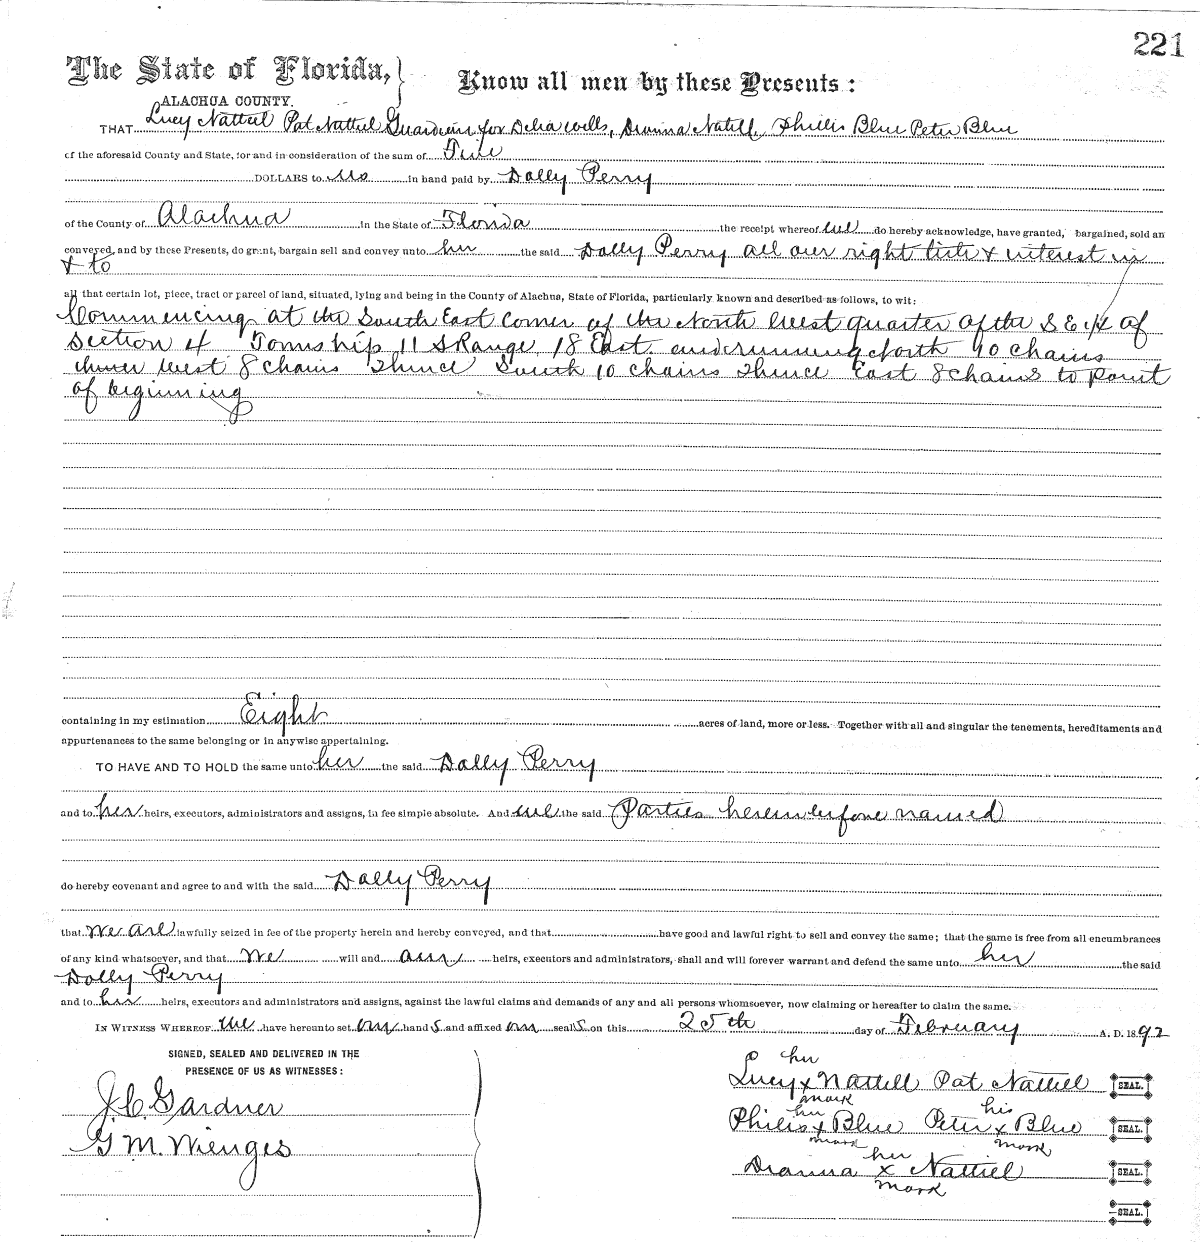 221
The State of Florida, } Know all men by these Presents:
ALACHUA COUNTY.
THAT Lucy Nattiel Pat Nattiel Guardian for Delia Wells, Dianna Natiel, Phillis Blue Peter Blue
of the aforesaid County and State, for and in consideration of the sum of
DOLLARS to us in hand paid by Dolly Perry
of the County of Alachua in the State of Florida the receipt whereof we do hereby acknowledge, have granted, bargained, sold an
conveyed, and by these Presents, do grant, bargain sell and convey unto her the said Dolly Perry all our right title & interest in
& to
all that certain lot, piece, tract or parcel of land, situated, lying and being in the County of Alachua, State of Florida, particularly known and described as follows, to wit:
Commencing at the South East Corner of the North West quarter of the S E 1/4 of
Section 4 Township 11 S Range 18 East and running North 10 chains
thence West 8 chains Thence South 10 chains Thence East 8 chains to point
of beginning
containing in my estimation Eight acres of land, more or less. Together with all and singular the tenements, hereditaments and
appurtenances to the same belonging or in anywise appertaining.
TO HAVE AND TO HOLD the same unto her the said Dolly Perry
and to her heirs, executors, administrators and assigns, in fee simple absolute. And we the said Parties hereinbefore named
do hereby covenant and agree to and with the said Dolly Perry
that we are lawfully seized in fee of the property herein and hereby conveyed, and that have good and lawful right to sell and convey the same; that the same is free from all encumbrances
of any kind whatsoever, and that we will and our heirs, executors and administrators, shall and will forever warrant and defend the same unto her the said
Dolly Perry
and to her heirs, executors and administrators and assigns, against the lawful claims and demands of any and all persons whomsoever, now claiming or hereafter to claim the same.
IN WITNESS WHEREOF we have hereunto set our hands and affixed our seals on this 25th day of February A. D. 1892
SIGNED, SEALED AND DELIVERED IN THE
PRESENCE OF US AS WITNESSES:
J C Gardner
G M. Wienges
her
Lucy x Nattiell Pat Nattiell SEAL.
mark
her his
Philis x Blue Peter x Blue SEAL.
mark mark
her
Dianna x Nattiel SEAL.
mark
SEAL.